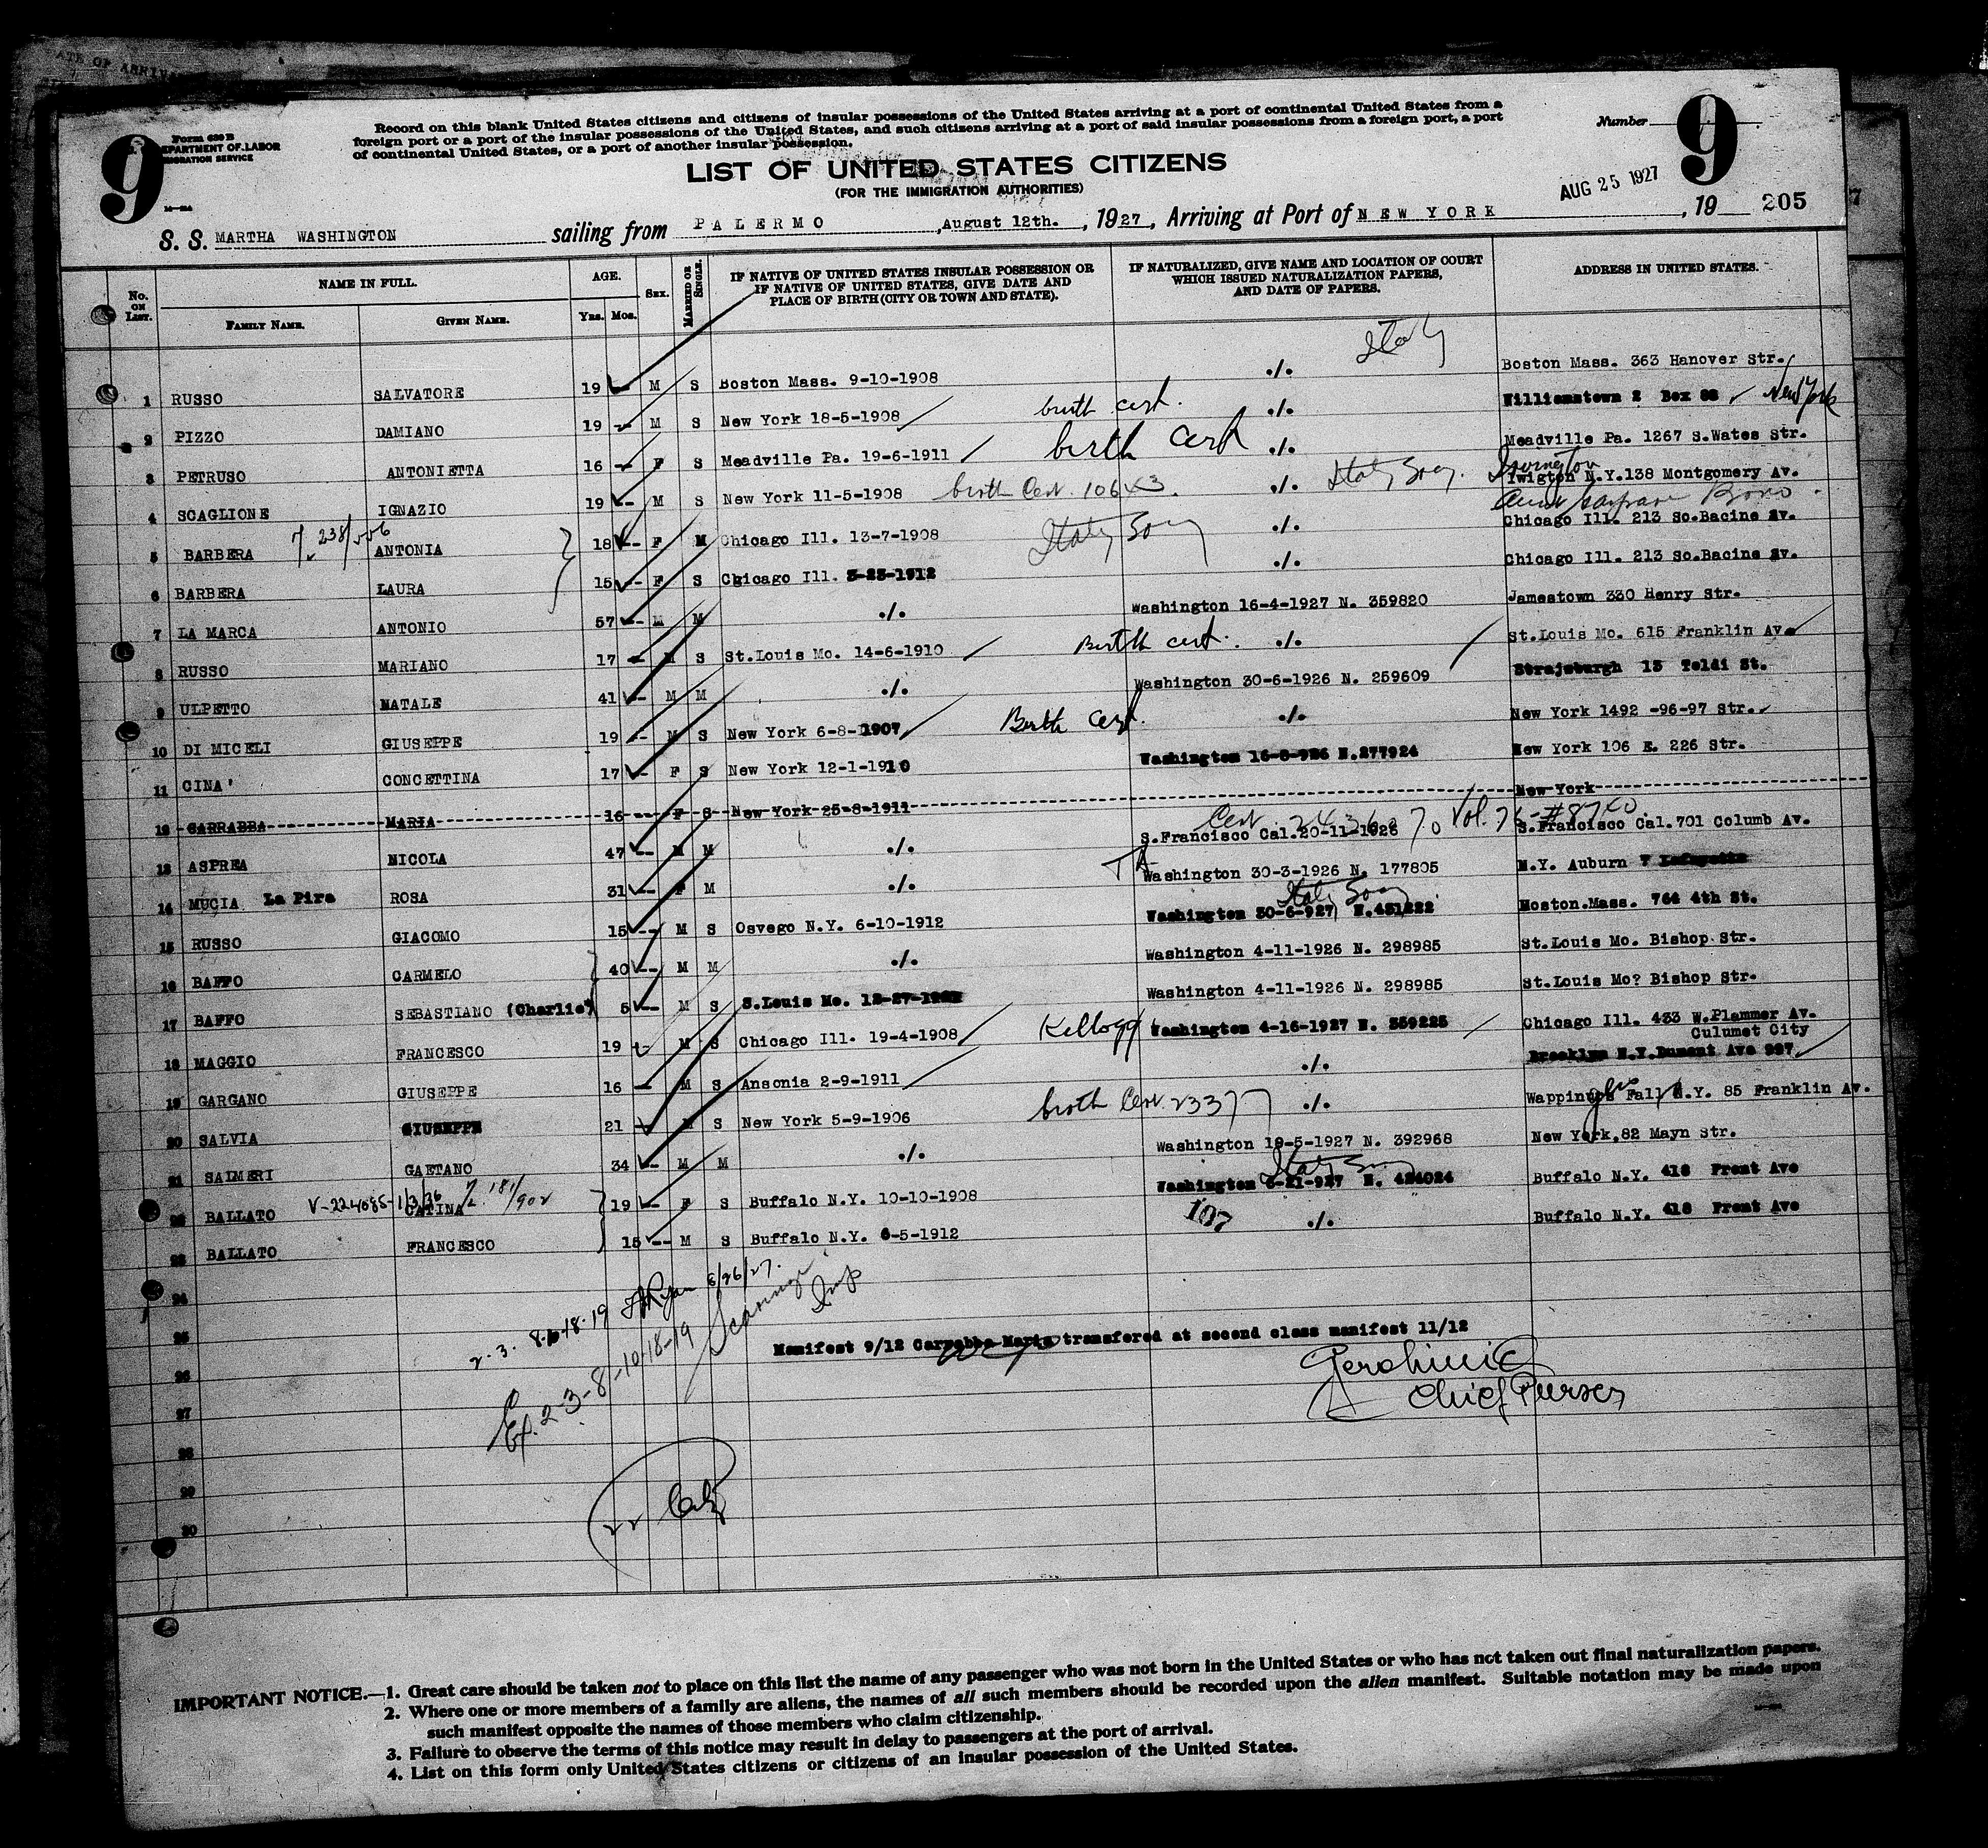 9
Form 630 B
DEPARTMENT OF LABOR
IMMIGRATION SERVICE
Record on this blank United States citizens and citizens of insular possessions of the United States arriving at a port of continental United States from a
foreign port or a port of the insular possessions of the United States, and such citizens arriving at a port of said insular possessions from a foreign port, a port
of continental United States, or a port of another insular possession.
Number
9
LIST OF UNITED STATES CITIZENS
(FOR THE IMMIGRATION AUTHORITIES)
AUG 25 1927
S. S. MARTHA WASHINGTON sailing from PALERMO, August 12th., 1927, Arriving at Port of NEW YORK, 19 205
No. ON LIST. NAME IN FULL. FAMILY NAME. GIVEN NAME. AGE. Yrs. Mos. SEX. MARRIED OR SINGLE. IF NATIVE OF UNITED STATES INSULAR POSSESSION OR IF NATIVE OF UNITED STATES, GIVE DATE AND PLACE OF BIRTH (CITY OR TOWN AND STATE). IF NATURALIZED, GIVE NAME AND LOCATION OF COURT WHICH ISSUED NATURALIZATION PAPERS, AND DATE OF PAPERS. ADDRESS IN UNITED STATES.
1 RUSSO SALVATORE 19 -- M S Boston Mass. 9-10-1908 ./. Italy Boston Mass. 363 Hanover Str.
2 PIZZO DAMIANO 19 -- M S New York 18-5-1908 birth cert. ./. Williamstown 2 Box 88 New York
3 PETRUSO ANTONIETTA 16 -- F S Meadville Pa. 19-6-1911 birth cert ./. Meadville Pa. 1267 S.Wates Str.
4 SCAGLIONE IGNAZIO 19 -- M S New York 11-5-1908 birth Cert. 10643. ./. Italy Irvington Twigton N.Y.138 Montgomery Av.
5 BARBERA 238/556 ANTONIA 18 -- F M Chicago Ill. 13-7-1908 Italy ./. Chicago Ill. 213 So.Bacine Av.
6 BARBERA LAURA 15 -- F S Chicago Ill. 3-23-1912 ./. Chicago Ill. 213 So.Bacine Av.
7 LA MARCA ANTONIO 57 -- M M ./. Washington 16-4-1927 N. 359820 Jamestown 330 Henry Str.
8 RUSSO MARIANO 17 -- M S St.Louis Mo. 14-6-1910 Birth cert. ./. St.Louis Mo. 615 Franklin Av.
9 ULPETTO NATALE 41 -- M M ./. Washington 30-6-1926 N. 259609 Strajsburgh 13 Toldi St.
10 DI MICELI GIUSEPPE 19 -- M S New York 6-8-1907 Birth Cert. ./. New York 1492 -96-97 Str.
11 CINA' CONCETTINA 17 -- F S New York 12-1-1910 Washington 16-8-926 N.277924 New York 106 E. 226 Str.
12 CARRABBA MARIA 16 -- F S New York 25-8-1911 New York
13 ASPREA NICOLA 47 -- M M ./. S.Francisco Cal.20-11-1926 S.Francisco Cal.701 Columb Av.
14 MUCIA La Pira ROSA 31 -- F M ./. Washington 30-3-1926 N. 177805 N.Y. Auburn
15 RUSSO GIACOMO 15 -- M S Osvego N.Y. 6-10-1912 Italy Washington 30-6-927 N.431222 Moston.Mass. 764 4th St.
16 BAFFO CARMELO 40 -- M M ./. Washington 4-11-1926 N. 298985 St.Louis Mo. Bishop Str.
17 BAFFO SEBASTIANO (Charlie) 5 -- M S S.Louis Mo. Washington 4-11-1926 N. 298985 St.Louis Mo? Bishop Str.
18 MAGGIO FRANCESCO 19 -- M S Chicago Ill. 19-4-1908 Kellogg Washington 4-16-1927 N. 359225 Chicago Ill. 433 W.Plammer Av. Culumet City
19 GARGANO GIUSEPPE 16 -- M S Ansonia 2-9-1911 ./. Brooklyn N.Y.Dumont Ave 997
20 SALVIA GIUSEPPE 21 -- M S New York 5-9-1906 birth Cert. 23377 ./. Wappingers Fall N.Y. 85 Franklin Av.
21 SALMERI GAETANO 34 -- M M ./. Washington 18-5-1927 N. 392968 New York,82 Mayn Str.
22 BALLATO V-224085-1/3/36 CATINA 181/902 19 -- F S Buffalo N.Y. 10-10-1908 Italy Washington 6-21-927 N. 424024 Buffalo N.Y. 418 Front Ave
23 BALLATO FRANCESCO 15 -- M S Buffalo N.Y. 6-5-1912 107 ./. Buffalo N.Y. 418 Front Ave
24
25
26
27
28
29
30
2-3-8-10-18-19 Ryan 8/26/27.
Ex. 2-3-8-10-18-19
Insp
Manifest 9/12 Carrabba Maria transfered at second class manifest 11/12
Chief Purser
IMPORTANT NOTICE.—1. Great care should be taken not to place on this list the name of any passenger who was not born in the United States or who has not taken out final naturalization papers.
2. Where one or more members of a family are aliens, the names of all such members should be recorded upon the alien manifest. Suitable notation may be made upon
such manifest opposite the names of those members who claim citizenship.
3. Failure to observe the terms of this notice may result in delay to passengers at the port of arrival.
4. List on this form only United States citizens or citizens of an insular possession of the United States.